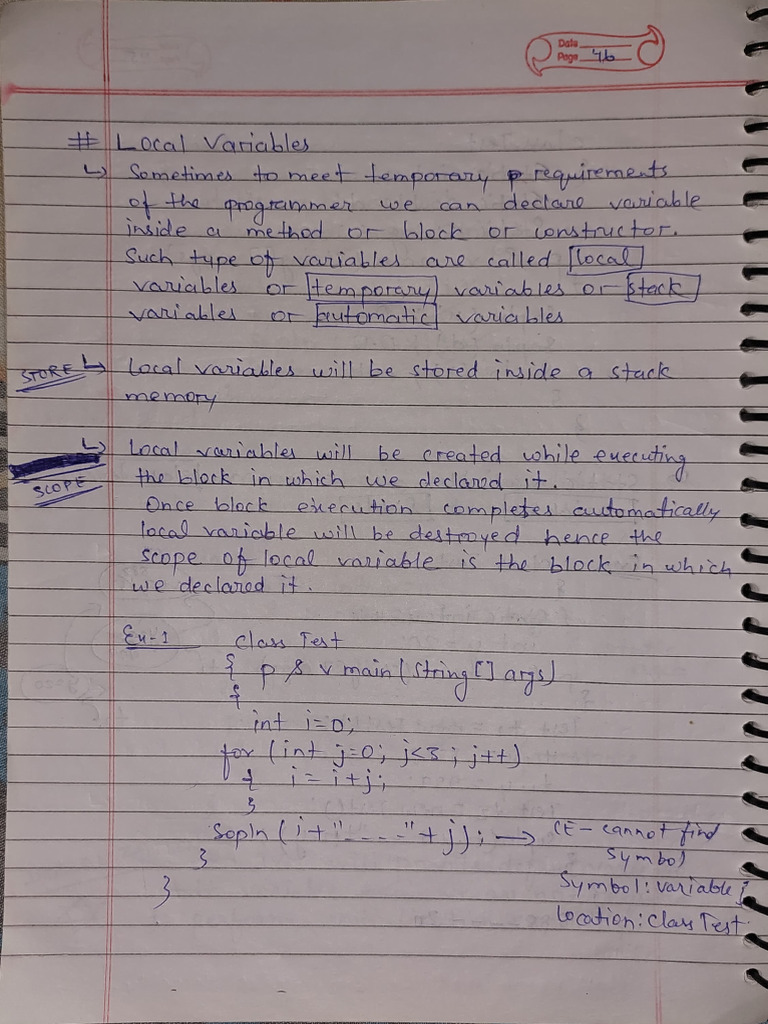 Date
Page 46
# Local Variables
↳ Sometimes to meet temporary requirements
of the programmer we can declare variable
inside a method or block or constructor.
Such type of variables are called local
variables or temporary variables or stack
variables or automatic variables
STORE ↳ Local variables will be stored inside a stack
memory
↳ Local variables will be created while executing
SCOPE the block in which we declared it.
Once block execution completes automatically
local variable will be destroyed hence the
scope of local variable is the block in which
we declared it.
Ex-1 Class Test
{ p s v main (String [] args)
{
int i=0;
for (int j=0; j<3; j++)
{ i = i+j;
}
Sopln (i+"----"+j); → CE - cannot find
} Symbol
} Symbol: variable j
location: class Test.